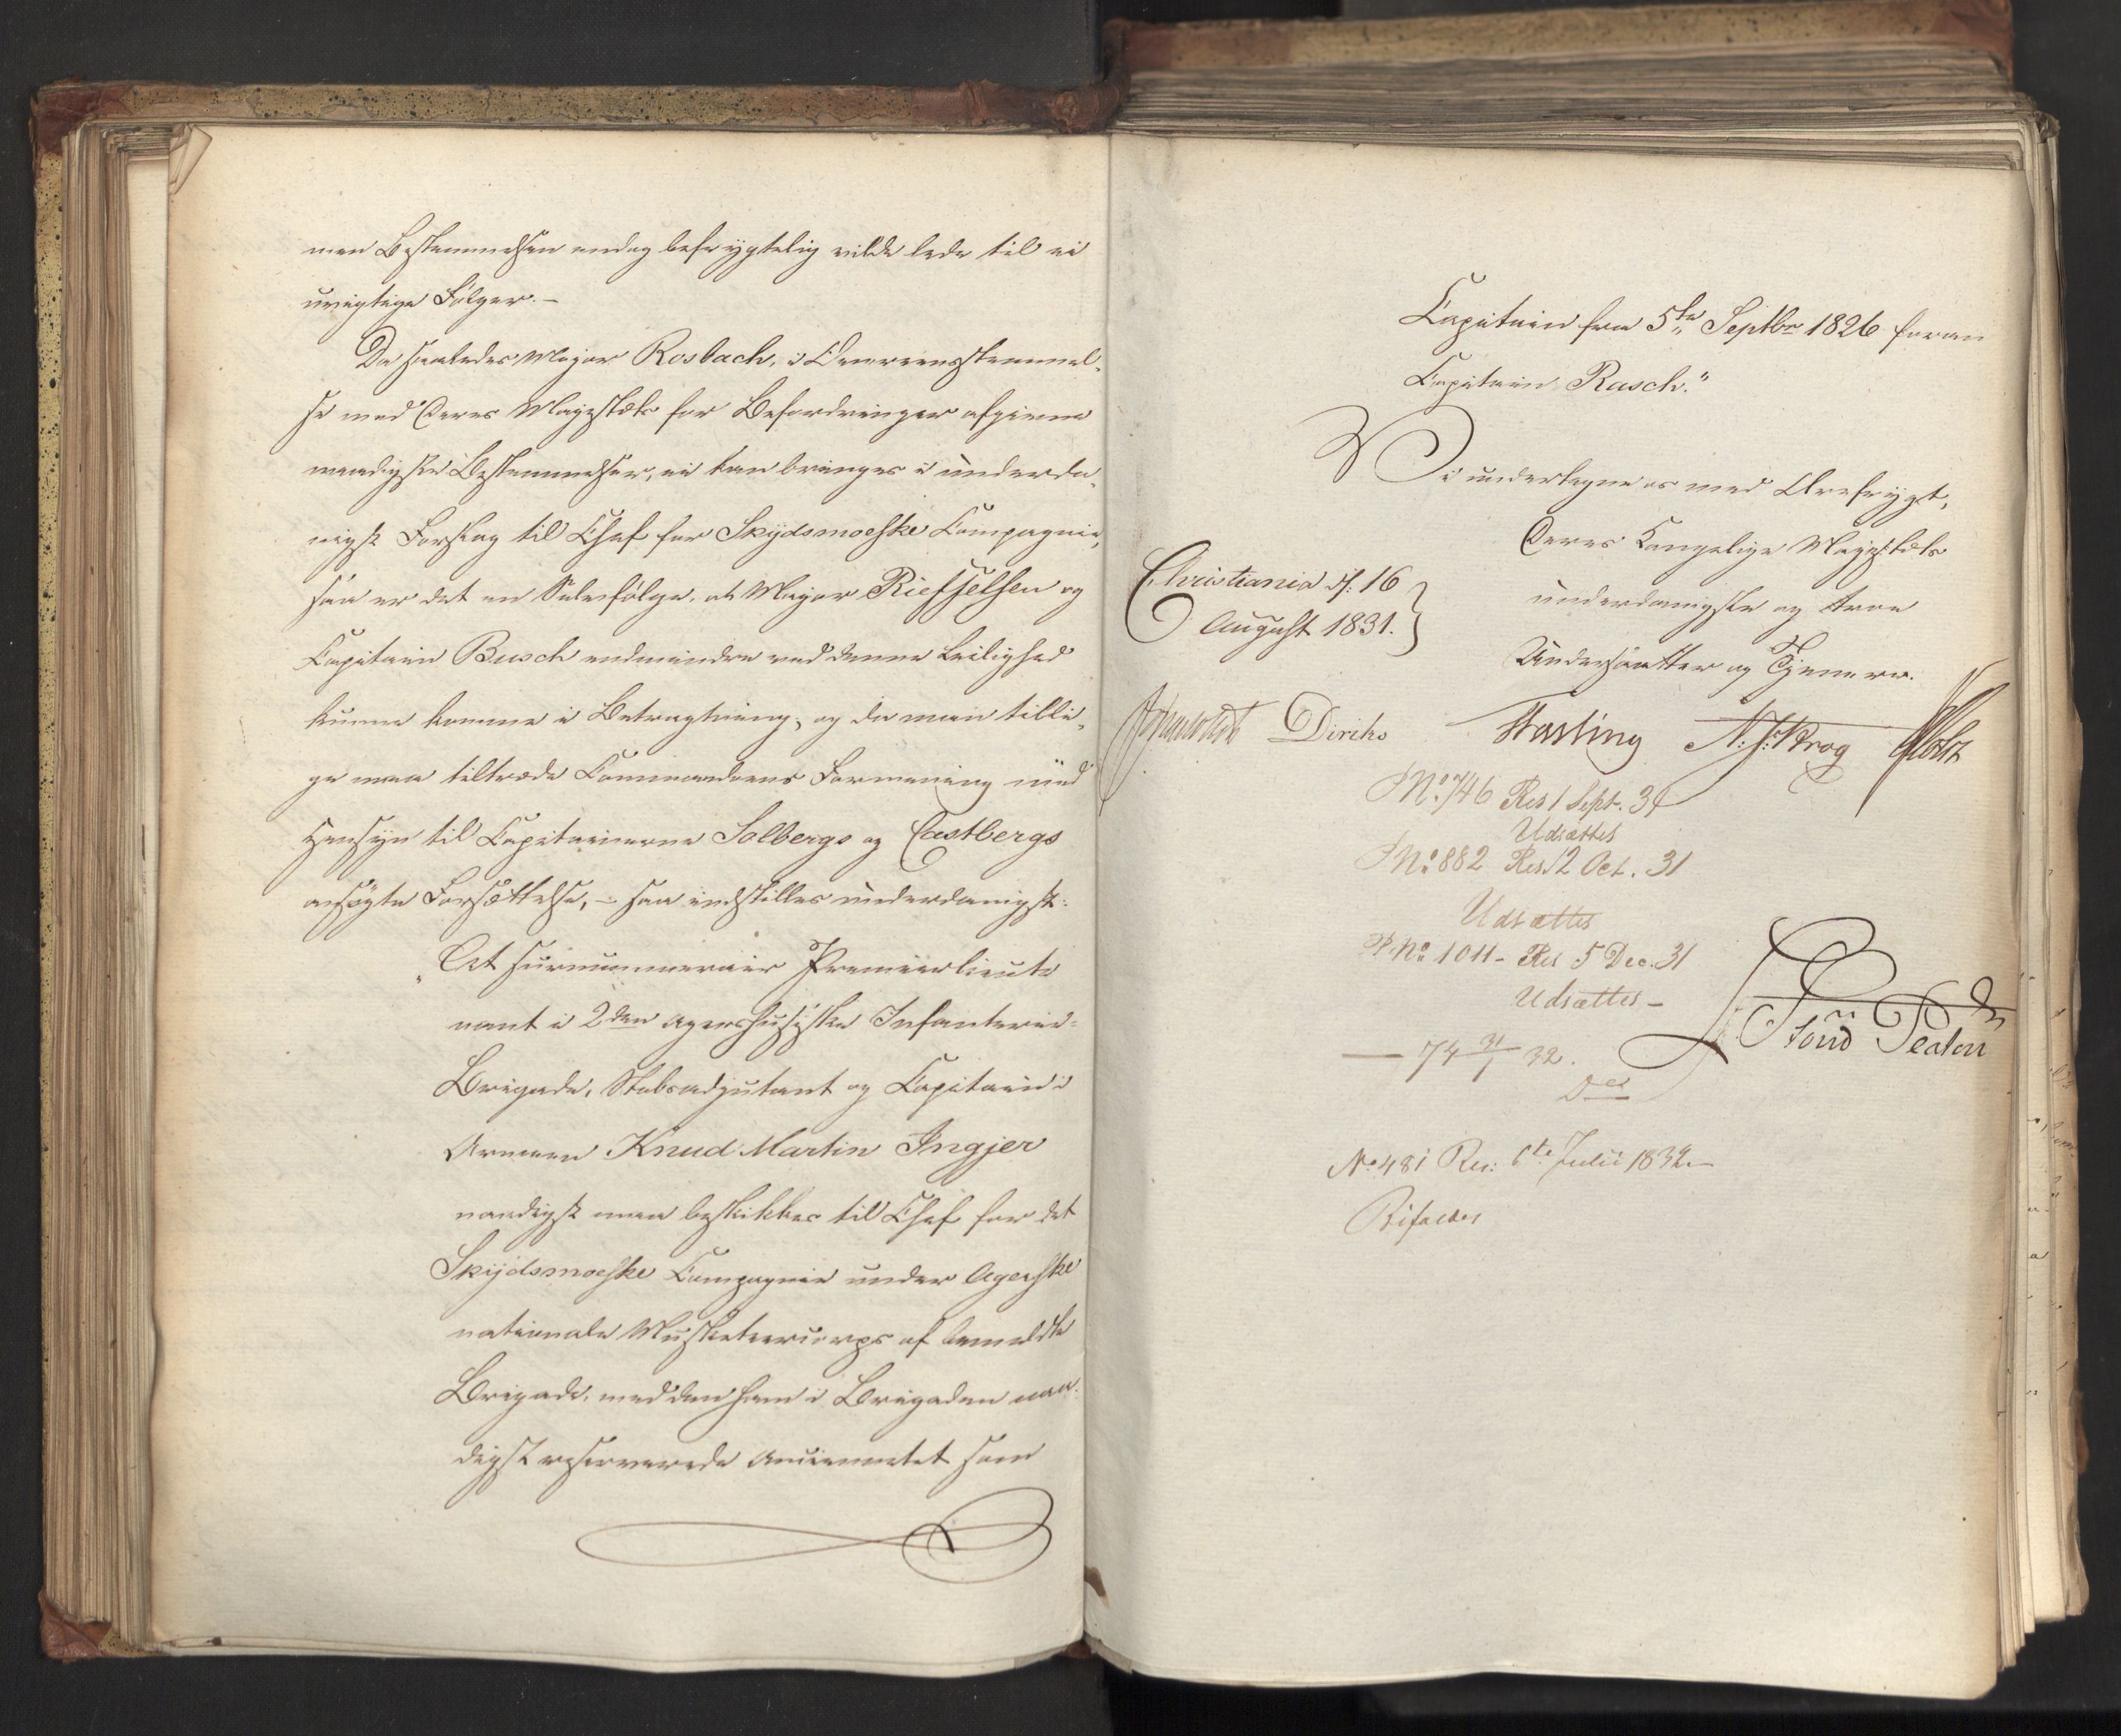 men Bestemmelsen endog befrygtelig vilde lede til ei
uvigtige Følger. –
Da saaledes Major Rosbach, i Overeensstemmel-
se med Deres Majestæts for Befordringer afgivne
naadigste Bestemmelser, ei kan bringes i underda-
nigst Forslag til Chef for Skydsmoeske Compagnie,
saa er det en Selvfølge, at Major Riefjelsen og
Capitain Busch endmindre ved denne Leilighed
kunne komme i Betragtning, og da man tilli-
ge maa tiltræde Commandoens Formening med
Hensyn til Capitainerne Solbergs og Castbergs
ansøgte Forsættelse, – saa indstilles underdanigst:
"At surnummerair Premierlieute
nant i 2den Agershusiske Infanterie-
Brigade, Stabsadjutant og Capitain i
Armeen Knud Martin Ingjer
naadigst maa beskikkes til Chef for det
Skydsmoeske Compagnie under Agerske
nationale Musketeercorps af bemeldte
Brigade, med den ham i Brigaden naa-
digst reserverede Anciennetet som
Capitain fra 5te Septbr 1826 foran
Capitain Rasch."
Vi undertegne os med Ærefrygt,
Deres Kongelige Majestæts
underdanigste og troe
Undersaatter og Tjenere.
Christiania d: 16
August 1831.
Diriks Fasting N. J. Krog Holst
No 746 Res 1 Sept. 31
Udsættes
No 882 Res 12 Oct. 31
Udsættes
No 1011 – Res 5 Dec. 31
Udsættes –
— 74 31/1 32.
No 481 Res: 6te Julii 1832. –
Bifaldes